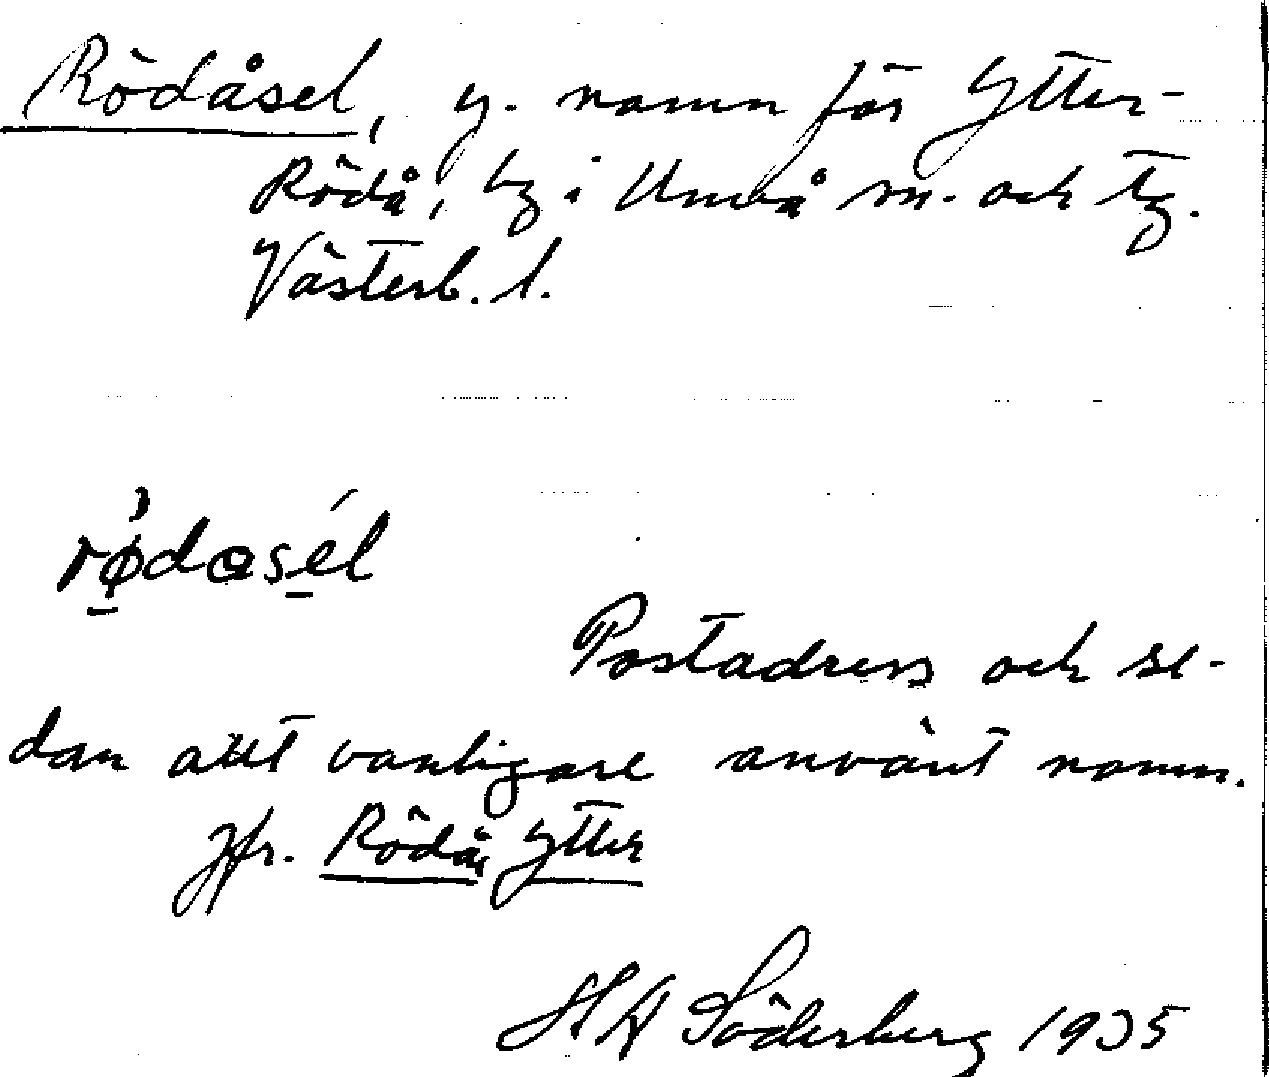 Rödåsel, y. namn för Ytter-
Rödå, by i Umeå sn. och tg.
Västerb. l.
rødasel
Postadress och se-
dan allt vanligare använt namn.
Jfr. Rödå, Ytter
H A Söderberg 1935